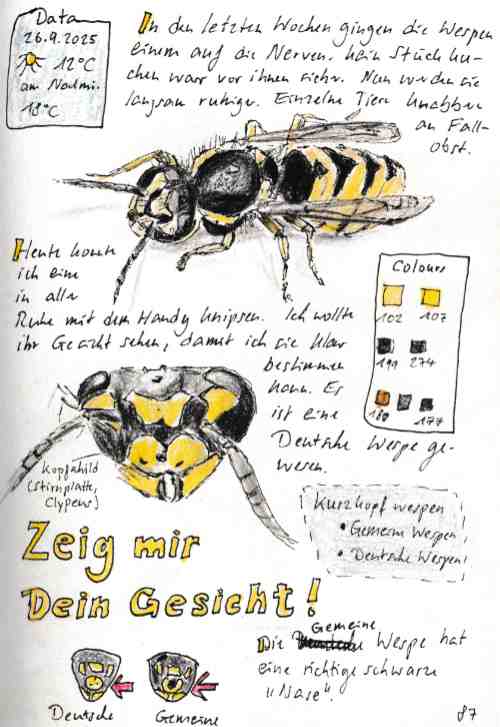 Data
26.9.2025
12°C
am Nachmi.
18°C
In den letzten Wochen gingen die Wespen
einem auf die Nerven. Kein Stück Ku-
chen war vor ihnen sicher. Nun werden sie
langsam ruhiger. Einzelne Tiere knabbern
an Fall-
obst.
Heute konnte
ich eine
in aller
Ruhe mit dem Handy knipsen. Ich wollte
ihr Gesicht sehen, damit ich sie klar
bestimmen
kann. Es
ist eine
Deutsche Wespe ge-
wesen.
Colours
102 107
199 274
180 177
Kopfschild
(Stirnplatte,
Clypeus)
Kurzkopfwespen
• Gemeine Wespen
• Deutsche Wespen
Zeig mir
Dein Gesicht!
Die Gemeine Wespe hat
eine richtige schwarze
"Nase".
Deutsche Gemeine
87